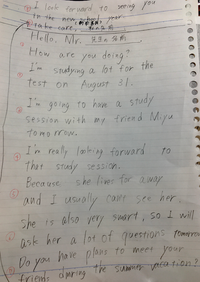 I look forward to seeing you
in the new school year.
Take care,
Hello, Mr. 先生の名前
How are you doing?
I'm studying a lot for the
test on August 31.
I'm going to have a study
session with my friend Miyu
tomorrow.
I'm really looking forward to
that study session.
Because she lives far away
and I usually can't see her.
She is also very smart, so I will
ask her a lot of questions tomorrow.
Do you have plans to meet your
friends during the summer vacation?